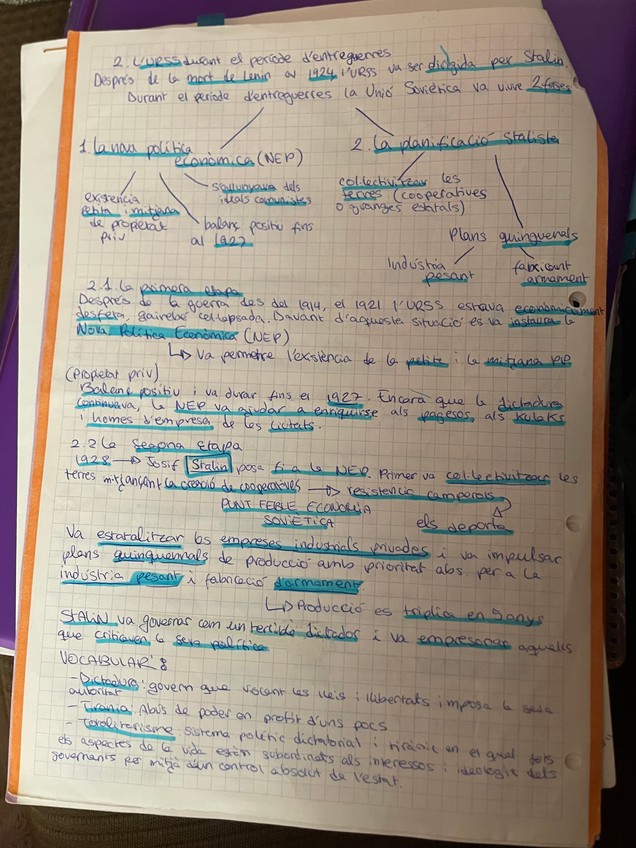 2. L'URSS durant el període d'entreguerres
Després de la mort de Lenin al 1924, l'URSS va ser dirigida per Stalin.
Durant el període d'entreguerres la Unió Soviètica va viure 2 fases
1. La nova política econòmica (NEP)
existència petita i mitjana de propietat priv
balanç positiu fins al 1927
s'allunyava dels ideals comunistes
2. La planificació Stalista
col·lectivitzar les terres (cooperatives o granges estatals)
Plans quinquenals
Indústria pesant
fabricant armament
2.1. La primera etapa
Després de la guerra des del 1914, el 1921 l'URSS estava econòmicament
desfeta, gairebé col·lapsada. Davant d'aquesta situació es va instaurar la
Nova Política Econòmica (NEP)
↳ Va permetre l'existència de la petita i la mitjana PP
(Propietat priv)
Balanç positiu i va durar fins el 1927. Encara que la dictadura
continuava, la NEP va ajudar a enriquirse als pagesos, als Kulaks
i homes d'empresa de les ciutats.
2.2 La Segona Etapa
1928 → Josif Stalin posa fi a la NEP. Primer va col·lectivitzar les
terres mitjançant la creació de cooperatives → resistència camperols
PUNT FEBLE ECONOMIA
SOVIÈTICA
els deporta
Va estatalitzar les empreses industrials privades i va impulsar
plans quinquenals de producció amb prioritat abs. per a la
indústria pesant i fabricació d'armament.
↳ Producció es triplica en 5 anys
STALIN va governar com un terrible dictador i va empresonar aquells
que critiquen la seva política
VOCABULARI:
- Dictadura: govern que violant les lleis i llibertats imposa la seva
autoritat
- Tirania: Abús de poder en profit d'uns pocs
- Totalitarisme: sistema polític dictatorial i tirànic en el qual tots
els aspectes de la vida estan subordinats als interessos i ideologia dels
governants per mitjà d'un control absolut de l'estat.